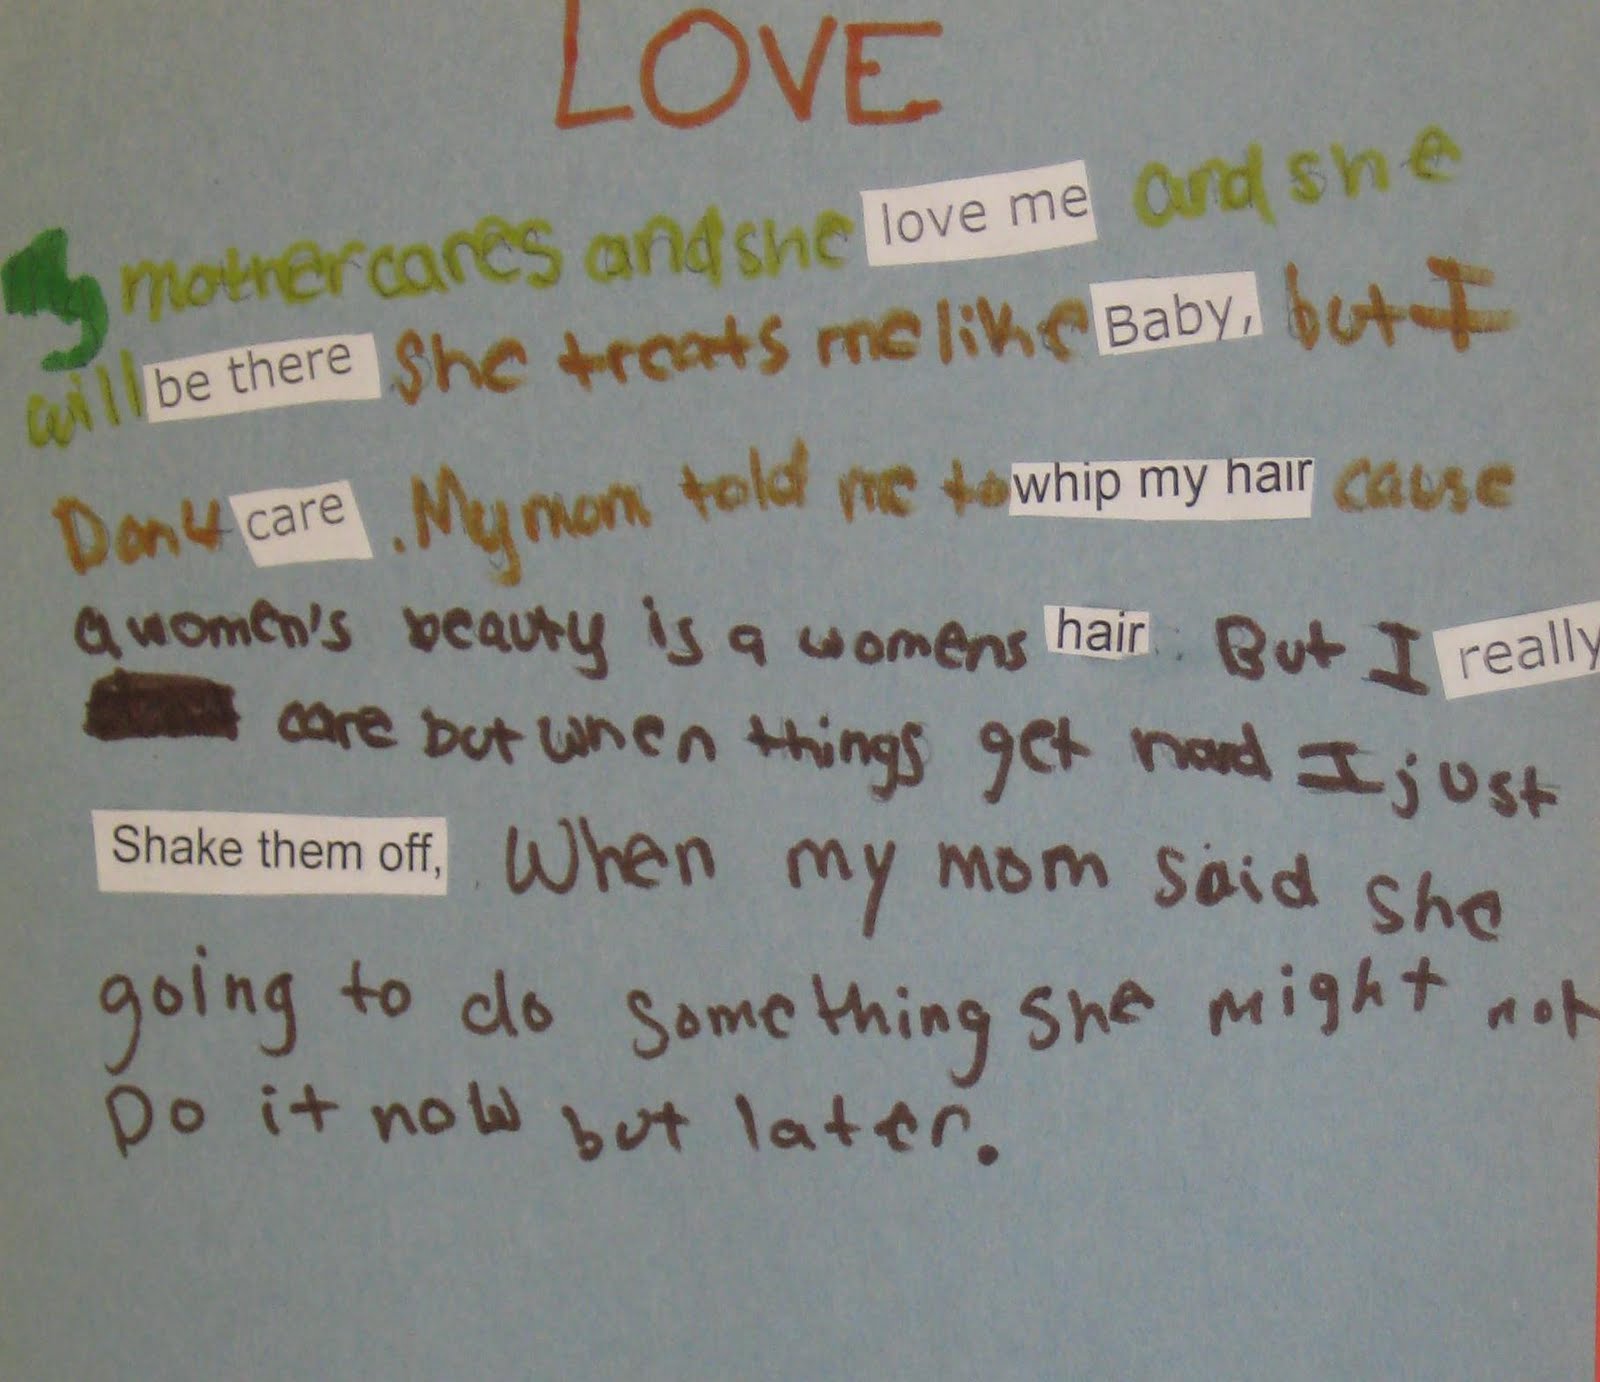 LOVE
My mother cares and she love me and she
will be there She treats me like Baby, but I
Don't care . My mom told me to whip my hair cause
a women's beauty is a womens hair . But I really
care but when things get hard I just
Shake them off, . When my mom said she
going to do something she might not
Do it now but later.